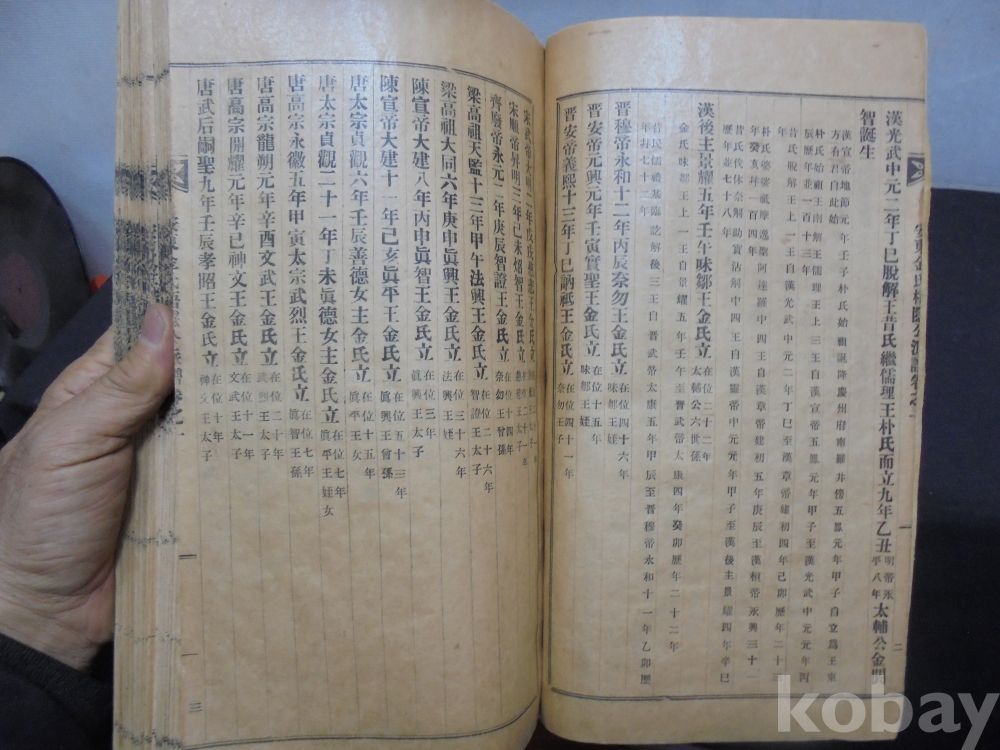 漢光武中元二年丁巳脫解王昔氏繼儒理王朴氏而立九年乙丑明帝永平八年太輔公金閼
智誕生
漢宣帝地節元年壬子朴氏始祖誕降慶州府南蘿井傍五鳳元年甲子自立爲王東
方有君自此始
朴氏始祖王南解王儒理王上三王自漢宣帝五鳳元年甲子至漢光武中元元年丙
辰歷年並一百十三年
昔氏脫解王上一王自漢光武中元二年丁巳至漢章帝建初四年己卯歷年二十三
年
朴氏婆娑祇摩逸聖阿達羅中四王自漢章帝建初五年庚辰至漢桓帝永興三十一
年癸亥幷一百四年
昔氏伐休奈解助賁沾解中四王自漢靈帝中元元年甲子至漢後主景耀四年辛巳
歷年並七十八年
漢後主景耀五年壬午味鄒王金氏立在位二十二年太輔公六世孫
金氏味鄒王上一王自景耀五年壬午至晉武帝太康四年癸卯歷年二十二年
昔氏儒禮基臨訖解後三王自晉武帝太康五年甲辰至晉穆帝永和十一年乙卯歷
年幷七十三年
晋穆帝永和十二年丙辰奈勿王金氏立在位四十六年味鄒王姪
晋安帝元興元年壬寅實聖王金氏立在位十五年味鄒王孫
晋安帝義熙十三年丁巳訥祇王金氏立在位四十一年奈勿王子
二
宋武帝大明二年戊戌慈悲王金氏立
宋順帝昇明三年己未炤智王金氏立
齊廢帝永元二年庚辰智證王金氏立在位十四年奈勿王曾孫
梁高祖天監十三年甲午法興王金氏立在位二十六年
梁高祖大同六年庚申眞興王金氏立在位三十六年法興王姪
陳宣帝大建八年丙申眞智王金氏立在位三年眞興王太子
陳宣帝大建十一年己亥眞平王金氏立在位五十三年眞興王曾孫
唐太宗貞觀六年壬辰善德女主金氏立在位十五年眞平王女
唐太宗貞觀二十一年丁未眞德女主金氏立在位七年眞平王姪女
唐高宗永徽五年甲寅太宗武烈王金氏立在位七年眞智王孫
唐高宗龍朔元年辛酉文武王金氏立在位二十年武烈王太子
唐高宗開耀元年辛巳神文王金氏立在位十一年文武王太子
唐武后嗣聖九年壬辰孝昭王金氏立在位十年神文王太子
三
kobay